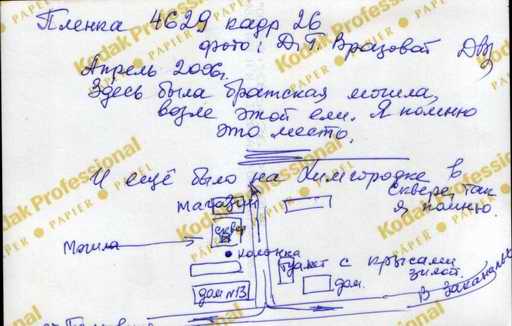 Пленка 4629 кадр 26
фото: Д. Г. Вразовой
Апрель 2006г.
Здесь была братская могила,
возле этой ели. Я помню
это место.
И ещё было на Химгородке в
сквере, так
я помню.
магазин
сквер
Могила
колонка
туалет с крысами
зимой.
дом.
дом N13
В Заканалье
Kodak Professional
PAPIER • PAPER • PAPEL